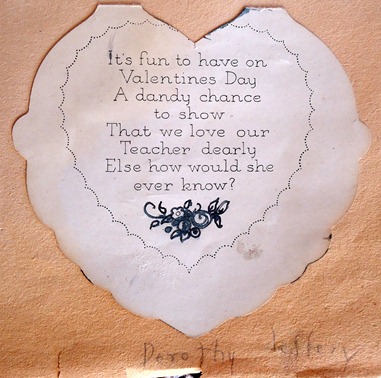 It's fun to have on
Valentines Day
A dandy chance
to show
That we love our
Teacher dearly
Else how would she
ever know?
Dorothy Jeffery